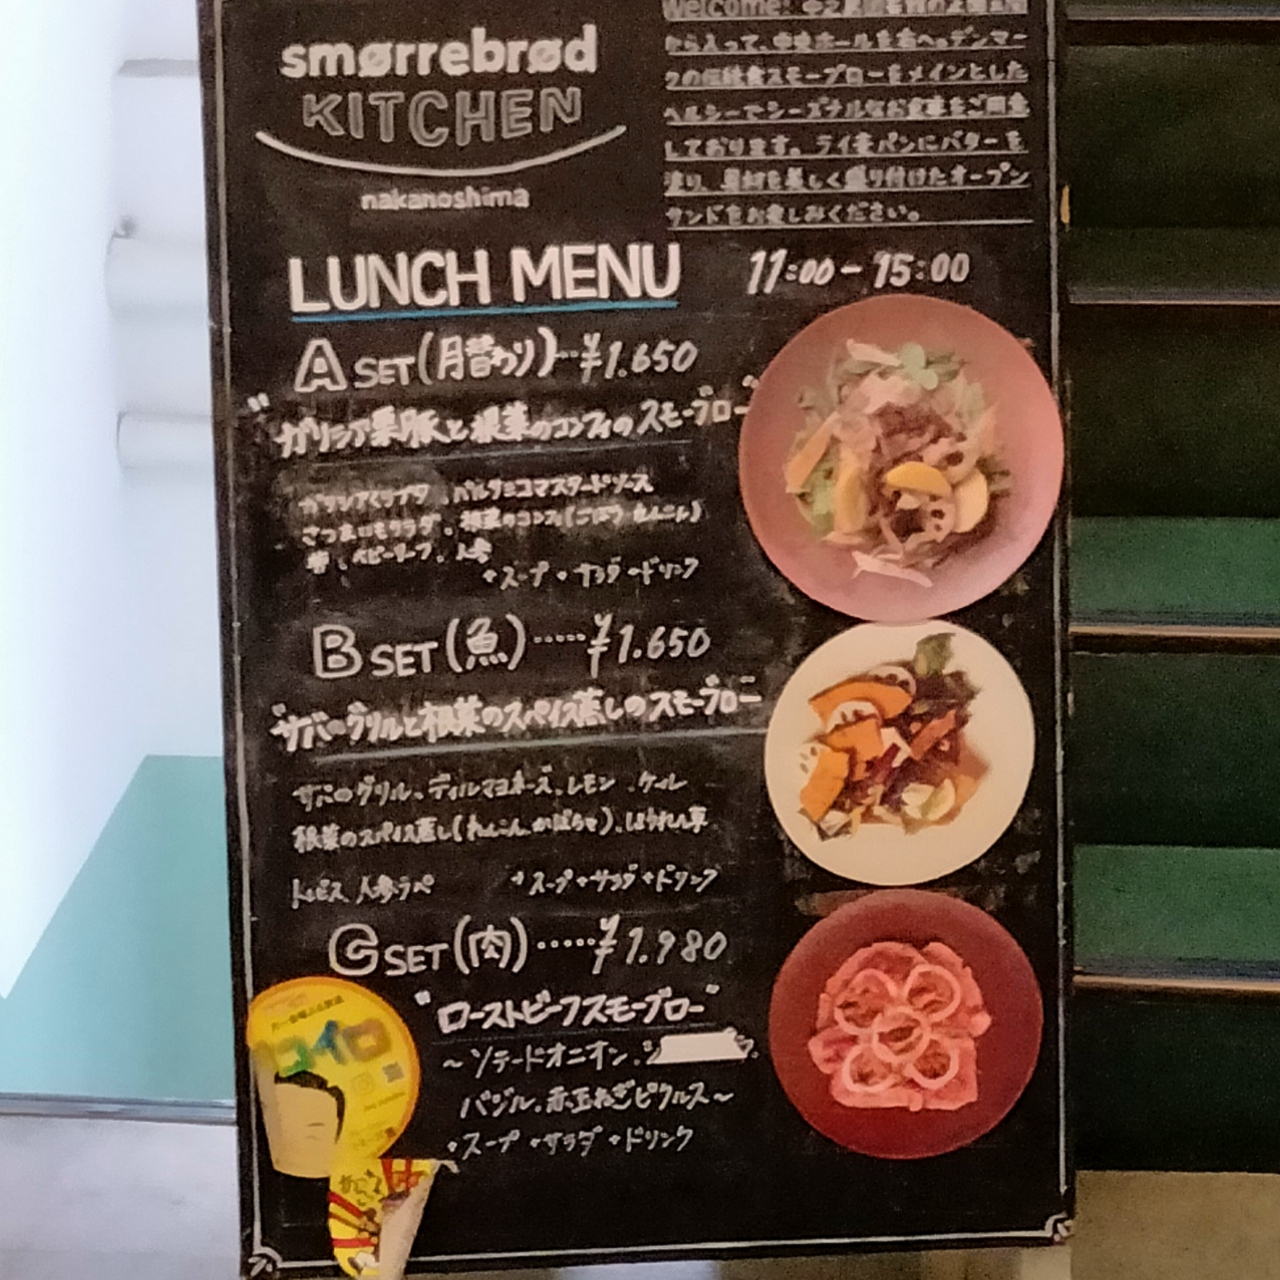 smørrebrød
KITCHEN
nakanoshima
Welcome! 中之島図書館の正面玄関
から入って、中央ホールを右へ。デンマー
クの伝統食スモーブローをメインとした
ヘルシーでシーズナルなお食事をご用意
しております。ライ麦パンにバターを
塗り、具材を美しく盛り付けたオープン
サンドをお楽しみください。
LUNCH MENU 11:00-15:00
A SET(月替わり)…¥1.650
"ガリシア栗豚と根菜のコンフィのスモーブロー"
ガリシアくりブタ、バルサミコマスタードソース
さつまいもサラダ、根菜のコンフィ(ごぼう れんこん)
ベビーリーフ、人参
+スープ+サラダ+ドリンク
B SET(魚)……¥1.650
"サバのグリルと根菜のスパイス蒸しのスモーブロー
サバのグリル、ディルマヨネーズ、レモン、ケール
根菜のスパイス蒸し(れんこん、かぼちゃ)、ほうれん草
人参ラペ +スープ+サラダ+ドリンク
C SET(肉)……¥1.980
"ローストビーフスモーブロー"
~ソテードオニオン、
バジル、赤玉ねぎピクルス~
+スープ+サラダ+ドリンク